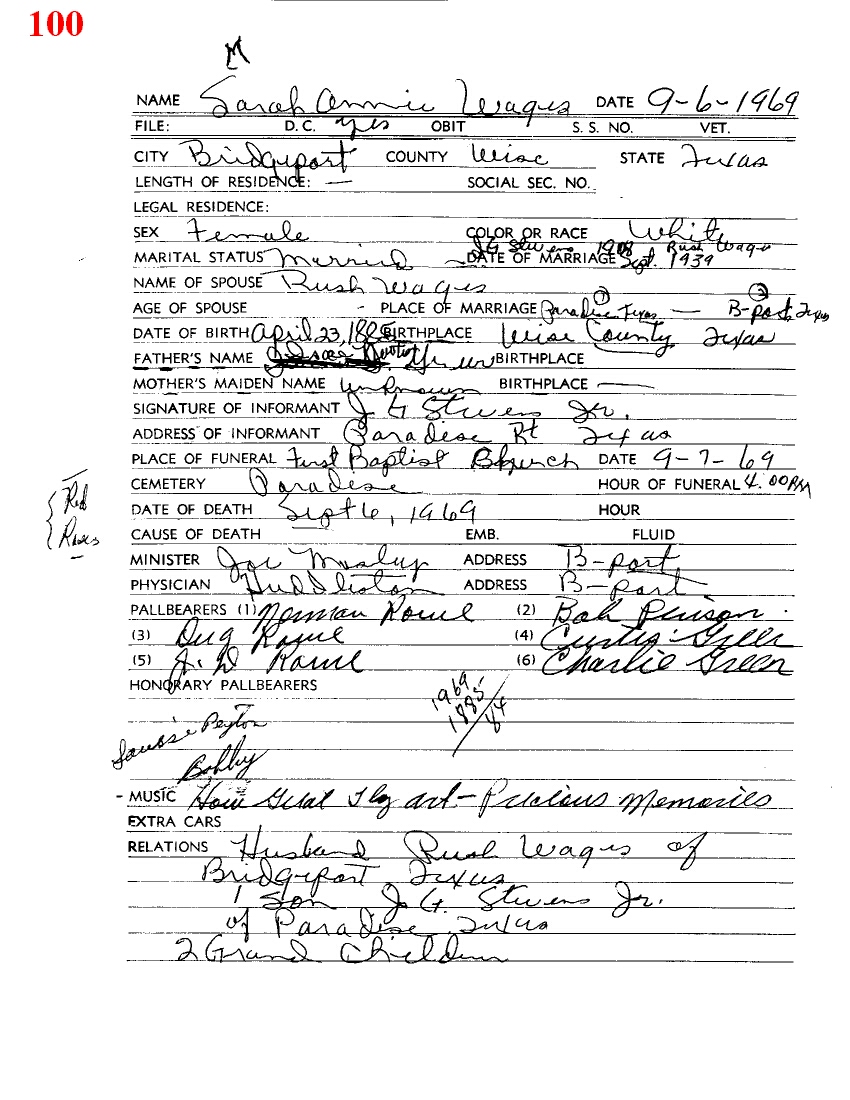 100
M
NAME Sarah Annie Wages DATE 9-6-1969
FILE: D.C. yes OBIT S. S. NO. VET.
CITY Bridgeport COUNTY Wise STATE Texas
LENGTH OF RESIDENCE: — SOCIAL SEC. NO.
LEGAL RESIDENCE:
SEX Female COLOR OR RACE White
J G Stevens 1908 Rush Wages
MARITAL STATUS Married DATE OF MARRIAGE Sept. 1939
NAME OF SPOUSE Rush Wages
AGE OF SPOUSE - PLACE OF MARRIAGE (1) Paradise Texas — (2) B-port, Texas
DATE OF BIRTH April 23, BIRTHPLACE Wise County Texas
FATHER'S NAME BIRTHPLACE
MOTHER'S MAIDEN NAME unknown BIRTHPLACE —
SIGNATURE OF INFORMANT J G Stevens Jr.
ADDRESS OF INFORMANT Paradise Rt Texas
PLACE OF FUNERAL First Baptist Church DATE 9-7-69
CEMETERY Paradise HOUR OF FUNERAL 4:00 PM
Red
Roses
DATE OF DEATH Sept 6, 1969 HOUR
CAUSE OF DEATH EMB. FLUID
MINISTER Joe ADDRESS B-port
PHYSICIAN Huddleston ADDRESS B-port
PALLBEARERS (1) Norman (2) Bob
(3) (4) Curtis Green
(5) J. D (6) Charlie Green
HONORARY PALLBEARERS
1969
1885
84
Louise Peyton
Bobby
- MUSIC How Great Thou art - Precious Memories
EXTRA CARS
RELATIONS Husband Rush Wages of
Bridgeport Texas
1 Son J G. Stevens Jr.
of Paradise Texas
2 Grand Children